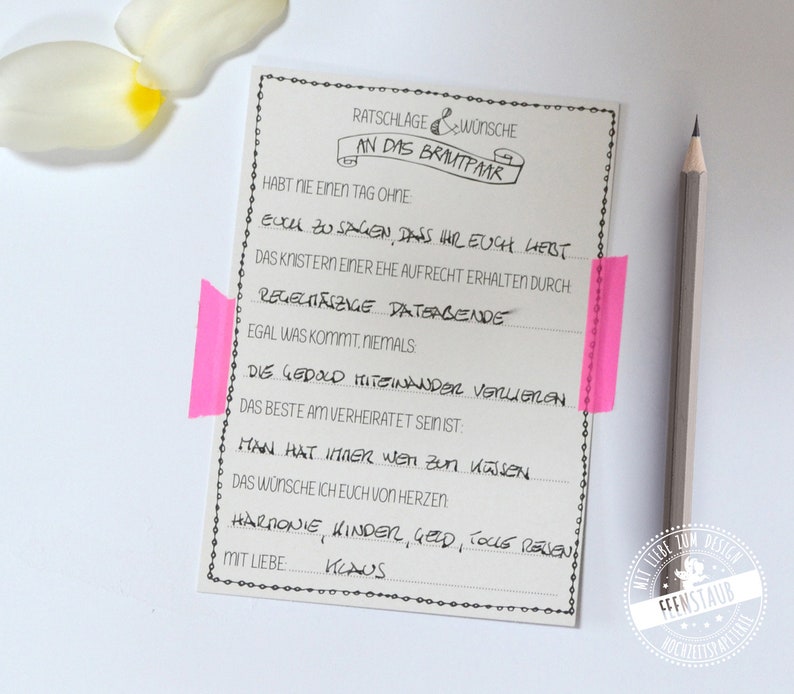 RATSCHLÄGE & WÜNSCHE
AN DAS BRAUTPAAR
HABT NIE EINEN TAG OHNE:
EUCH ZU SAGEN, DASS IHR EUCH LIEBT
DAS KNISTERN EINER EHE AUFRECHT ERHALTEN DURCH:
REGELMÄSZIGE DATEABENDE
EGAL WAS KOMMT, NIEMALS:
DIE GEDULD MITEINANDER VERLIEREN
DAS BESTE AM VERHEIRATET SEIN IST:
MAN HAT IMMER WEM ZUM KÜSSEN
DAS WÜNSCHE ICH EUCH VON HERZEN:
HARMONIE, KINDER, GELD, TOLLE REISEN
MIT LIEBE: KLAUS
MIT LIEBE ZUM DESIGN
FEENSTAUB
HOCHZEITSPAPETERIE